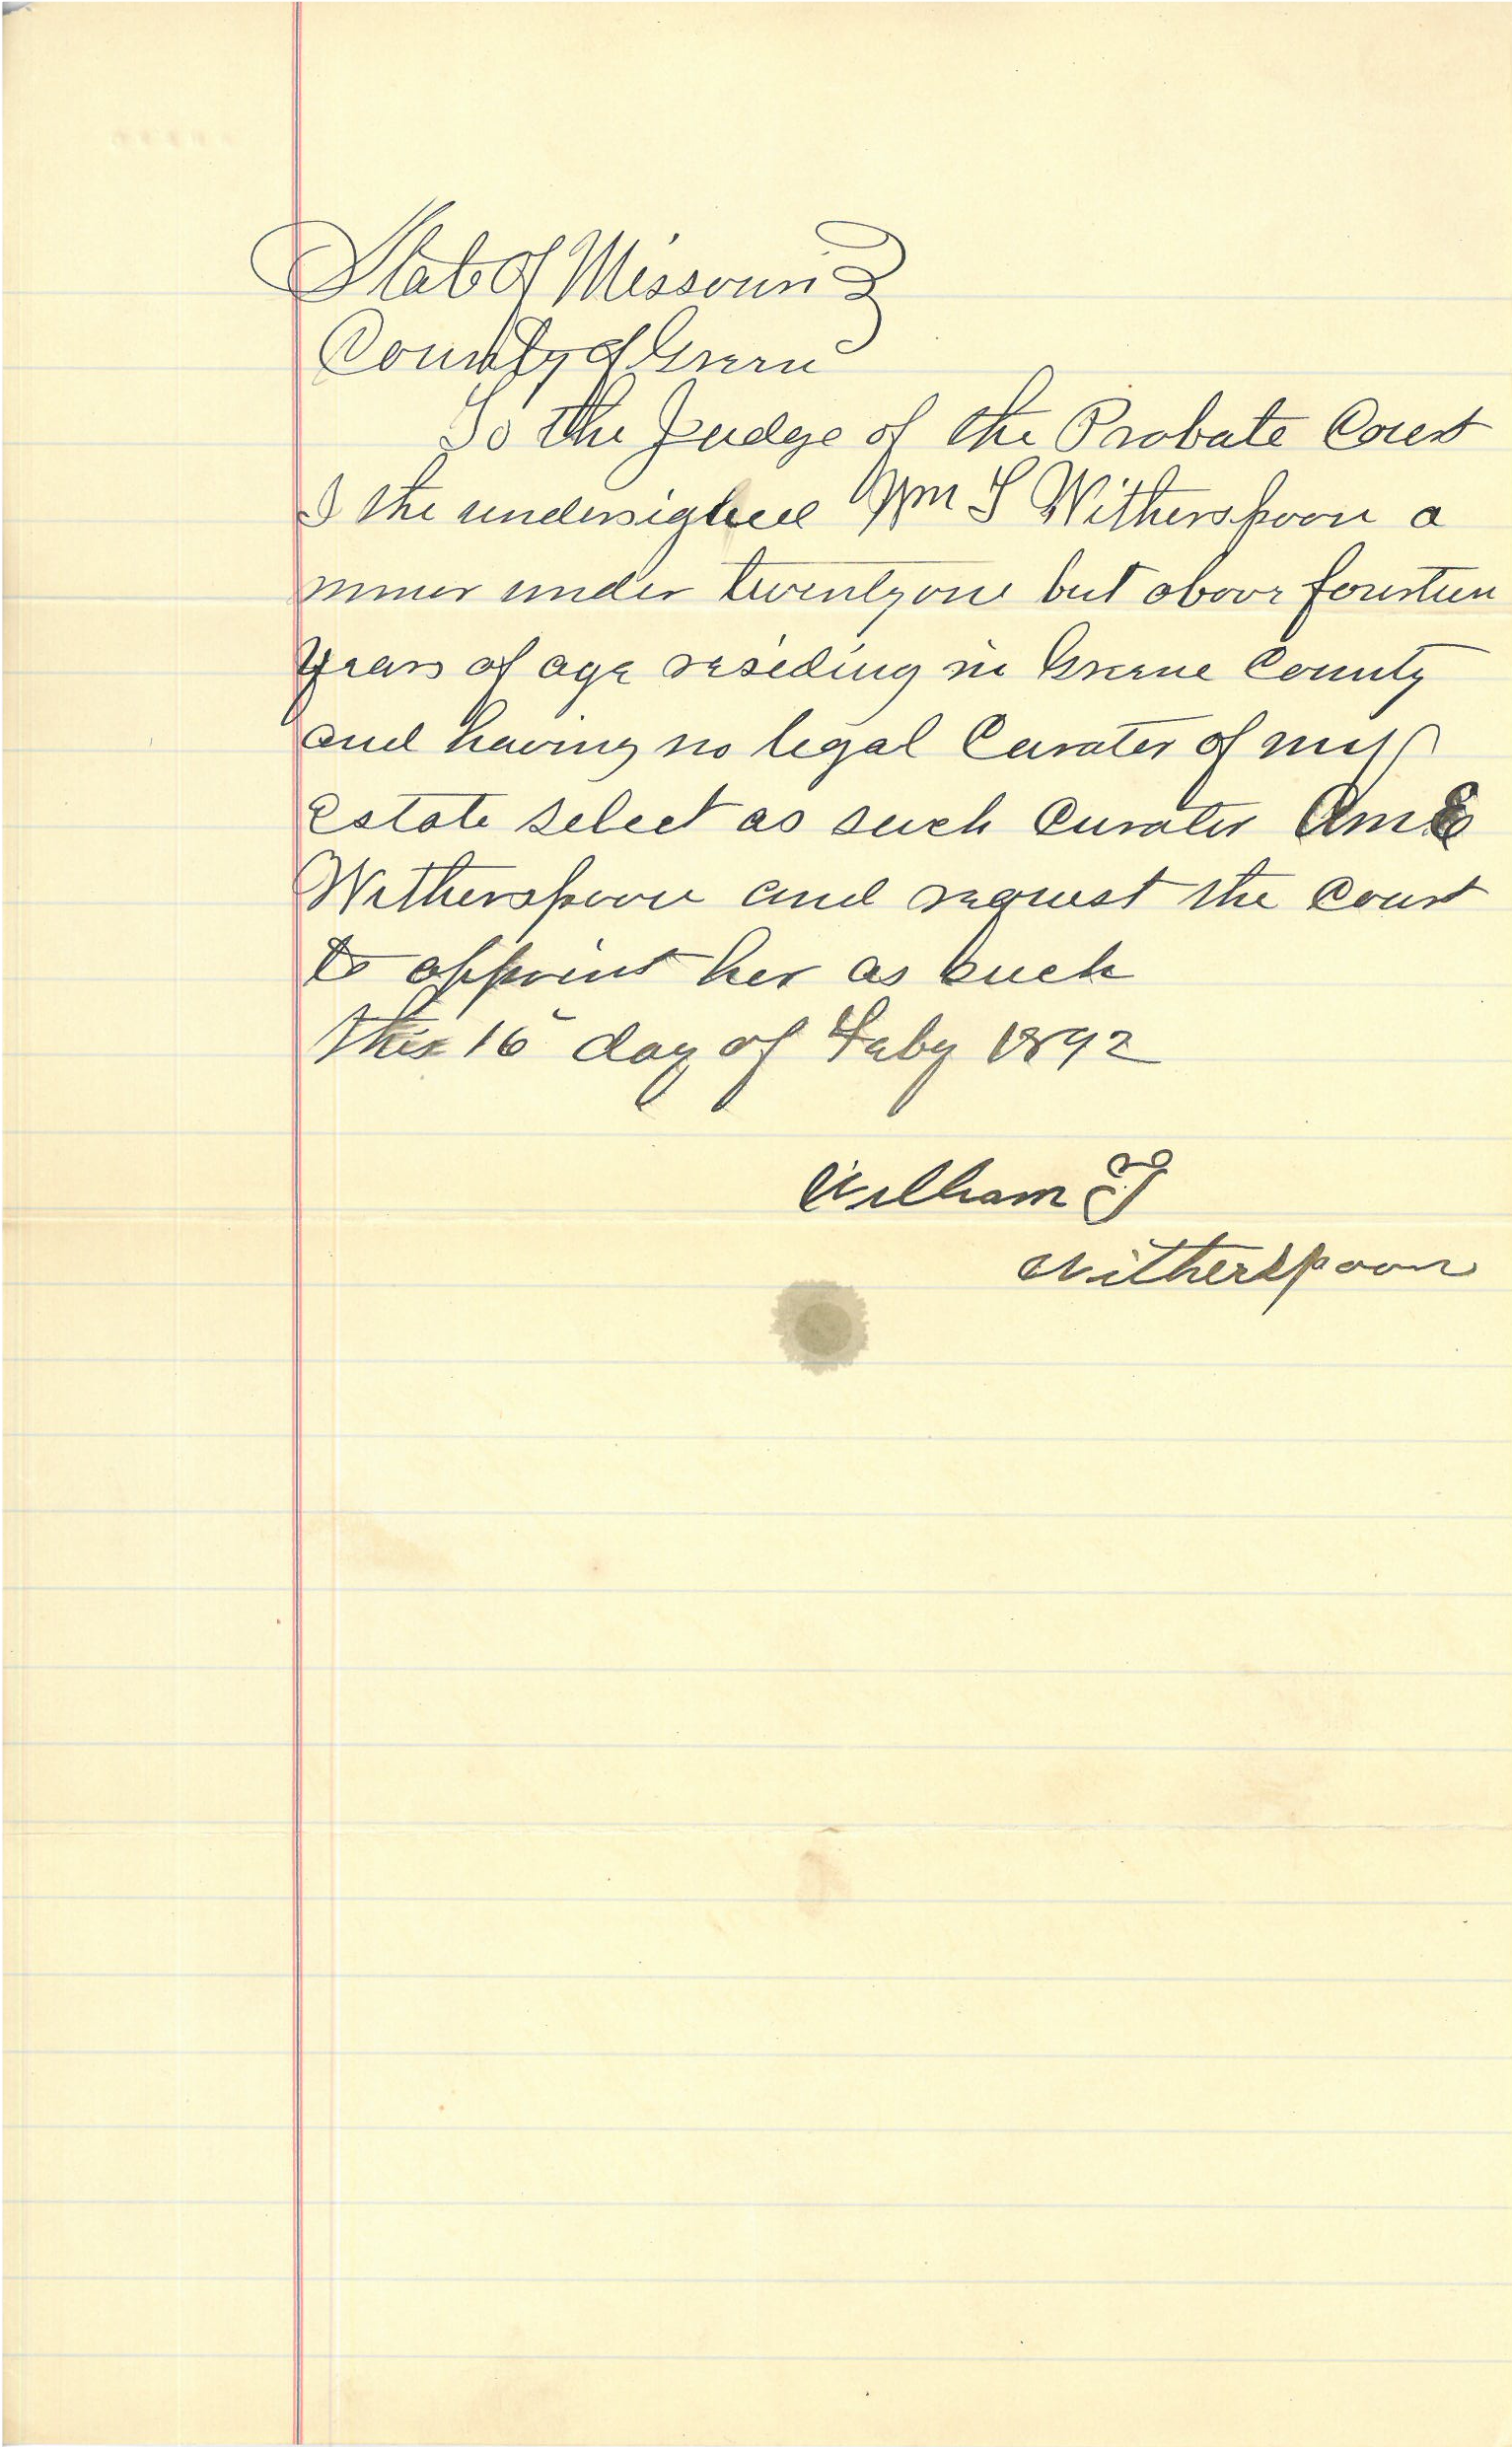 State of Missouri
County of Green
To the Judge of the Probate Court
I the undersigned Wm T Witherspoon a
minor under twentyone but above fourteen
years of age reseding in Greene County
and having no legal Curater of my
Estate select as such Curater Am E
Witherspoon and request the Court
to appoint her as such
this 16 day of Feby 1892
William T
Witherspoon